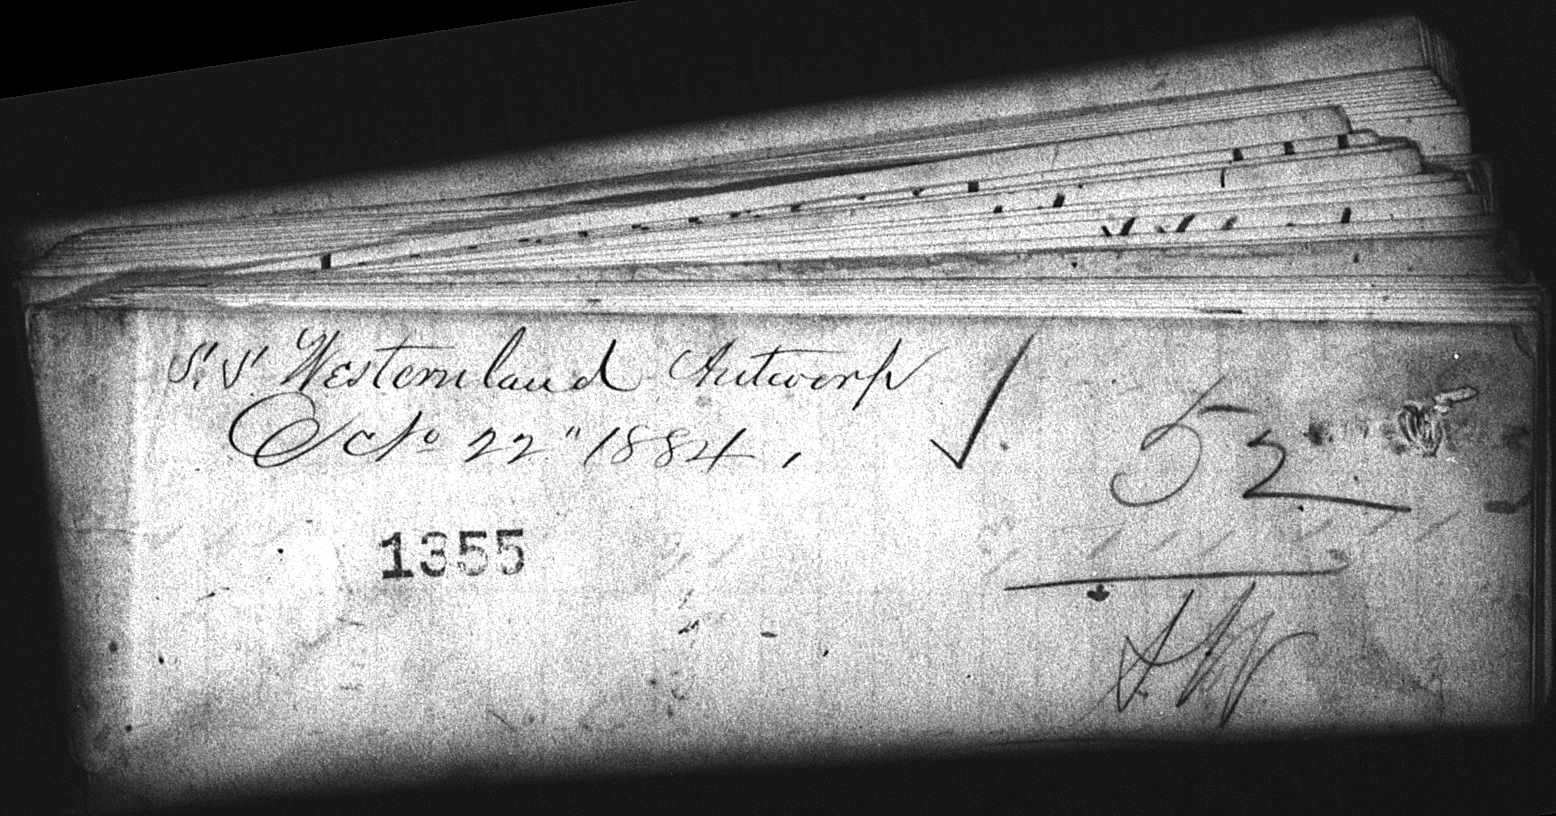 S.S. Westernland Antwerp
Octo 22" 1884,
52
1355